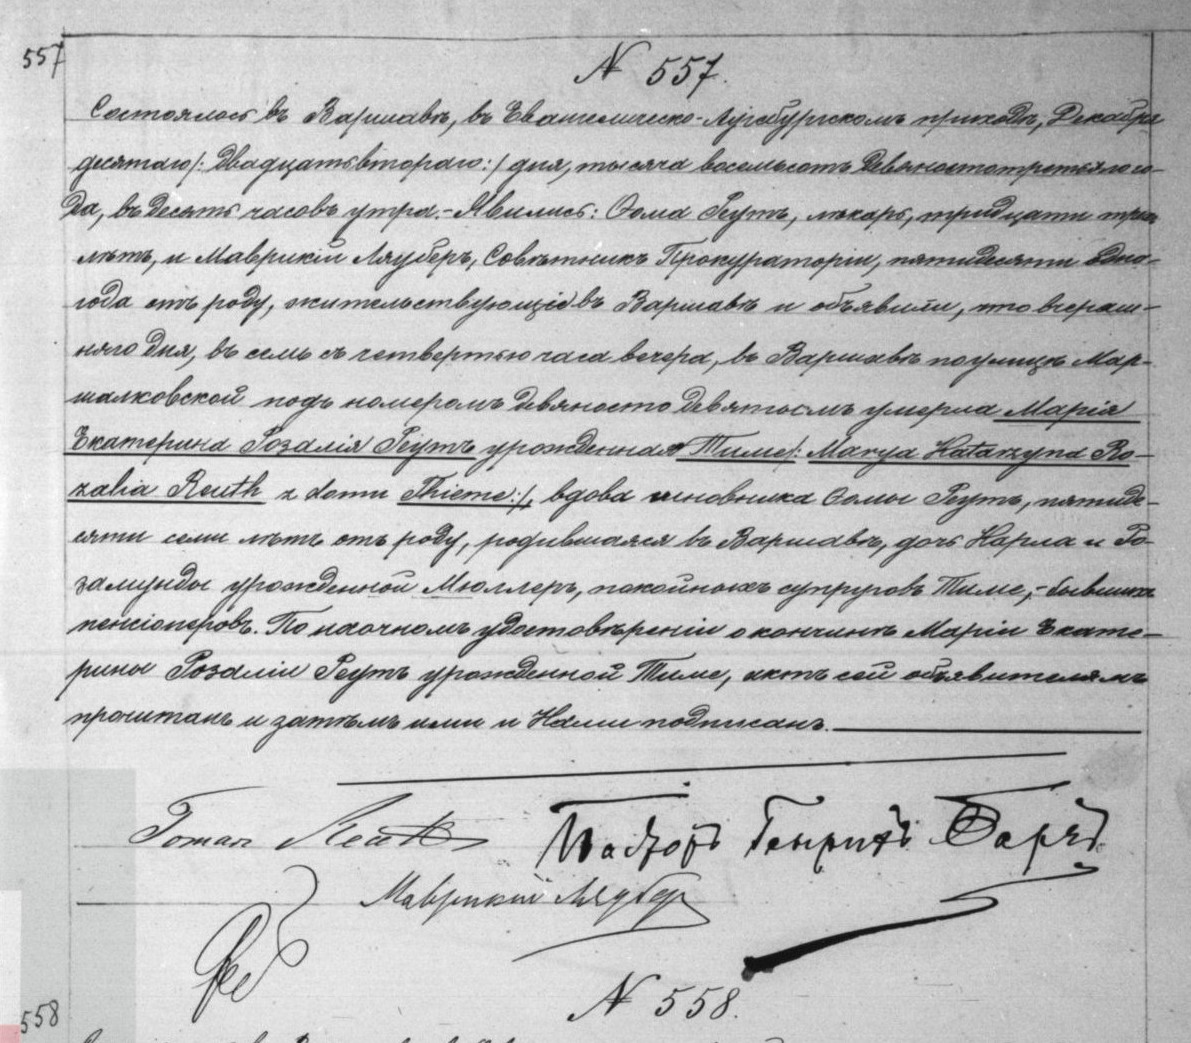 557
N 557.
Состоялось въ Варшавѣ, въ Евангелическо-Аугсбургскомъ приходѣ, Декабря
десятаго /: двадцать втораго :/ дня, тысяча восемьсотъ девяносто третьяго го-
да, въ десять часовъ утра. - Явились: Ѳома Реутъ, лѣкарь, тридцати трехъ
лѣтъ, и Маврикій Ляуберъ, Совѣтникъ Прокураторіи, пятидесяти одно-
года отъ роду, жительствующіе въ Варшавѣ и объявили, что вчераш-
няго дня, въ семь съ четвертью часа вечера, въ Варшавѣ по улицѣ Мар-
шалковской подъ номеромъ девяносто девятымъ умерла Марія
Екатерина Розалія Реутъ урожденная Тиме /: Marya Katarzyna Ro-
zalia Reuth z domu Thieme :/, вдова чиновника Ѳомы Реутъ, пятиде-
сяти семи лѣтъ отъ роду, родившаяся въ Варшавѣ, дочь Карла и Ро-
залунды урожденной Мюллеръ, покойныхъ супруговъ Тиме, - бывшихъ
пенсіонеровъ. По наочномъ удостовѣреніи о кончинѣ Маріи Екате-
рины Розаліи Реутъ урожденной Тиме, актъ сей объявителямъ
прочитанъ и затѣмъ ими и Нами подписанъ.
Roman Reuth Пасторъ Генрихъ
Маврикій Ляуберъ
N 558.
558